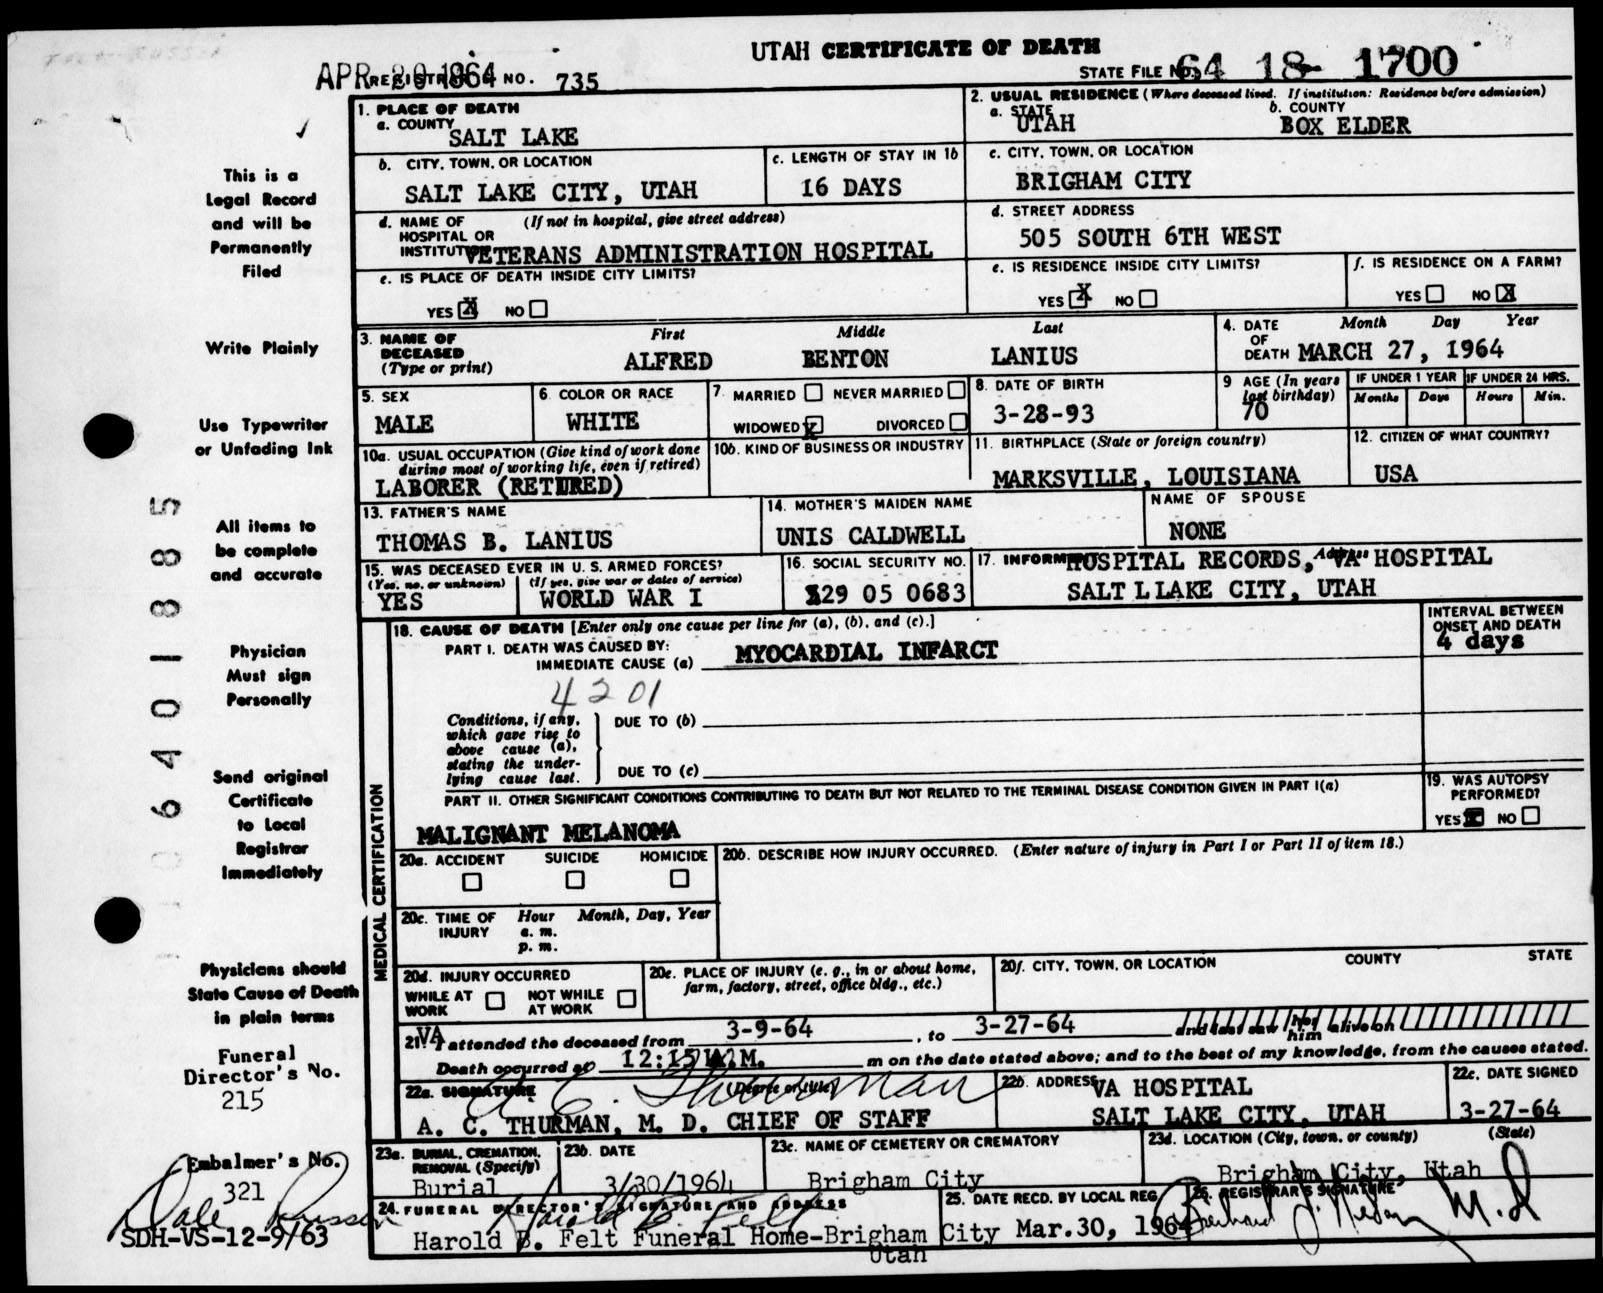 UTAH CERTIFICATE OF DEATH
APR 20 1964 REGISTRAR'S NO. 735
STATE FILE NO. 64 18- 1700
This is a
Legal Record
and will be
Permanently
Filed
Write Plainly
Use Typewriter
or Unfading Ink
All items to
be complete
and accurate
Physician
Must sign
Personally
Send original
Certificate
to Local
Registrar
Immediately
Physicians should
State Cause of Death
in plain terms
Funeral
Director's No.
215
Embalmer's No.
321
SDH-VS-12-9/63
6401885
1. PLACE OF DEATH
a. COUNTY
SALT LAKE
2. USUAL RESIDENCE (Where deceased lived. If institution: Residence before admission)
a. STATE
UTAH
b. COUNTY
BOX ELDER
b. CITY, TOWN, OR LOCATION
SALT LAKE CITY, UTAH
c. LENGTH OF STAY IN 1b
16 DAYS
c. CITY, TOWN, OR LOCATION
BRIGHAM CITY
d. NAME OF (If not in hospital, give street address)
HOSPITAL OR
INSTITUTION VETERANS ADMINISTRATION HOSPITAL
d. STREET ADDRESS
505 SOUTH 6TH WEST
e. IS PLACE OF DEATH INSIDE CITY LIMITS?
YES X NO
e. IS RESIDENCE INSIDE CITY LIMITS?
YES X NO
f. IS RESIDENCE ON A FARM?
YES NO X
3. NAME OF
DECEASED
(Type or print)
First Middle Last
ALFRED BENTON LANIUS
4. DATE
OF
DEATH
Month Day Year
MARCH 27, 1964
5. SEX
MALE
6. COLOR OR RACE
WHITE
7. MARRIED NEVER MARRIED
WIDOWED X DIVORCED
8. DATE OF BIRTH
3-28-93
9 AGE (In years
last birthday)
70
IF UNDER 1 YEAR
Months Days
IF UNDER 24 HRS.
Hours Min.
10a. USUAL OCCUPATION (Give kind of work done
during most of working life, even if retired)
LABORER (RETIRED)
10b. KIND OF BUSINESS OR INDUSTRY
11. BIRTHPLACE (State or foreign country)
MARKSVILLE, LOUISIANA
12. CITIZEN OF WHAT COUNTRY?
USA
13. FATHER'S NAME
THOMAS B. LANIUS
14. MOTHER'S MAIDEN NAME
UNIS CALDWELL
NAME OF SPOUSE
NONE
15. WAS DECEASED EVER IN U. S. ARMED FORCES?
(Yes, no, or unknown) (If yes, give war or dates of service)
YES WORLD WAR I
16. SOCIAL SECURITY NO.
29 05 0683
17. INFORMANT Address
HOSPITAL RECORDS, VA HOSPITAL
SALT L LAKE CITY, UTAH
MEDICAL CERTIFICATION
18. CAUSE OF DEATH [Enter only one cause per line for (a), (b), and (c).]
PART I. DEATH WAS CAUSED BY:
IMMEDIATE CAUSE (a) MYOCARDIAL INFARCT
INTERVAL BETWEEN
ONSET AND DEATH
4 days
4201
Conditions, if any,
which gave rise to
above cause (a),
stating the under-
lying cause last.
DUE TO (b)
DUE TO (c)
PART II. OTHER SIGNIFICANT CONDITIONS CONTRIBUTING TO DEATH BUT NOT RELATED TO THE TERMINAL DISEASE CONDITION GIVEN IN PART I(a)
MALIGNANT MELANOMA
19. WAS AUTOPSY
PERFORMED?
YES X NO
20a. ACCIDENT SUICIDE HOMICIDE
20b. DESCRIBE HOW INJURY OCCURRED. (Enter nature of injury in Part I or Part II of item 18.)
20c. TIME OF
INJURY
Hour Month, Day, Year
a. m.
p. m.
20d. INJURY OCCURRED
WHILE AT
WORK
NOT WHILE
AT WORK
20e. PLACE OF INJURY (e. g., in or about home,
farm, factory, street, office bldg., etc.)
20f. CITY, TOWN, OR LOCATION COUNTY STATE
21. VA attended the deceased from 3-9-64, to 3-27-64 and last saw her him alive on
Death occurred at 12:15 M. m on the date stated above; and to the best of my knowledge, from the causes stated.
22a. SIGNATURE (Degree or title)
A C Thurman
A. C. THURMAN, M. D. CHIEF OF STAFF
22b. ADDRESS
VA HOSPITAL
SALT LAKE CITY, UTAH
22c. DATE SIGNED
3-27-64
23a. BURIAL, CREMATION,
REMOVAL (Specify)
Burial
23b. DATE
3/30/1964
23c. NAME OF CEMETERY OR CREMATORY
Brigham City
23d. LOCATION (City, town, or county) (State)
Brigham City, Utah
24. FUNERAL DIRECTOR'S SIGNATURE AND ADDRESS
Harold B. Felt
Harold B. Felt Funeral Home-Brigham City
Utah
25. DATE RECD. BY LOCAL REG.
Mar.30, 1964
26. REGISTRAR'S SIGNATURE
M.D
Dale